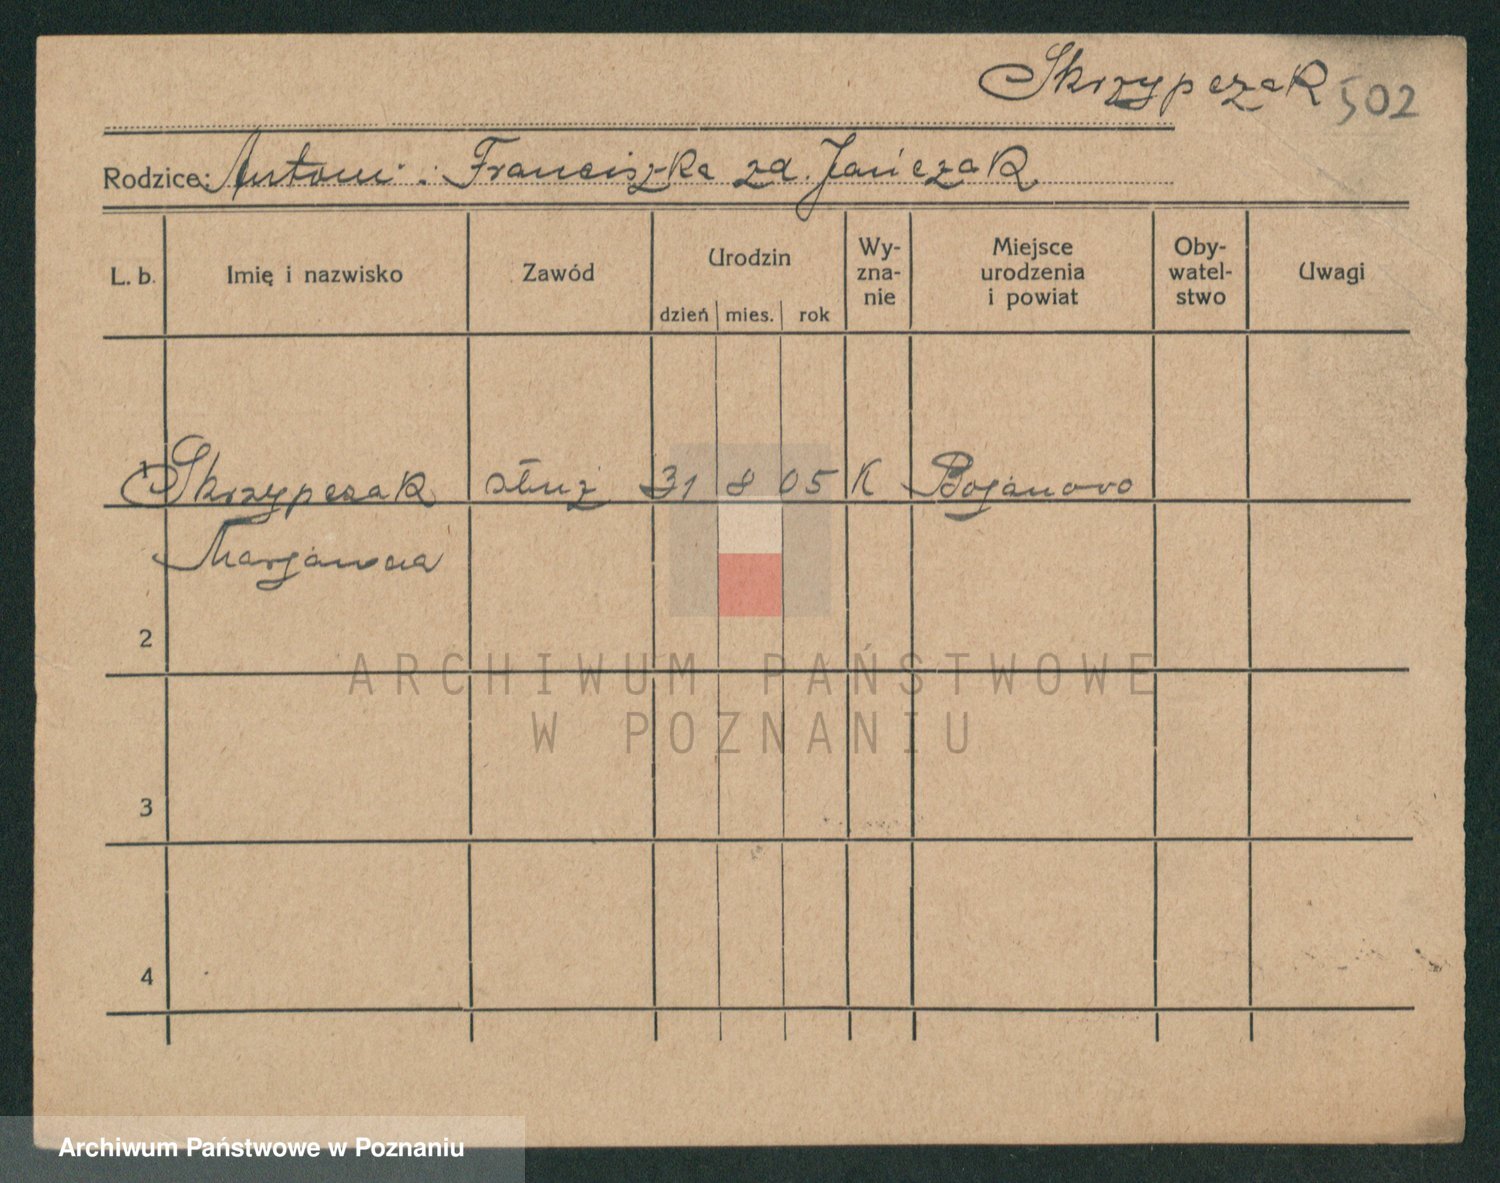 Skrzypczak 502
Rodzice: Antoni i Franciszka zd. Jańczak
L. b. Imię i nazwisko Zawód Urodzin dzień mies. rok Wy-zna-nie Miejsce urodzenia i powiat Oby-watel-stwo Uwagi
1 Skrzypczak służ 31 8 05 K Bojanowo
Marjanna
2
ARCHIWUM PAŃSTWOWE
W POZNANIU
3
4
Archiwum Państwowe w Poznaniu